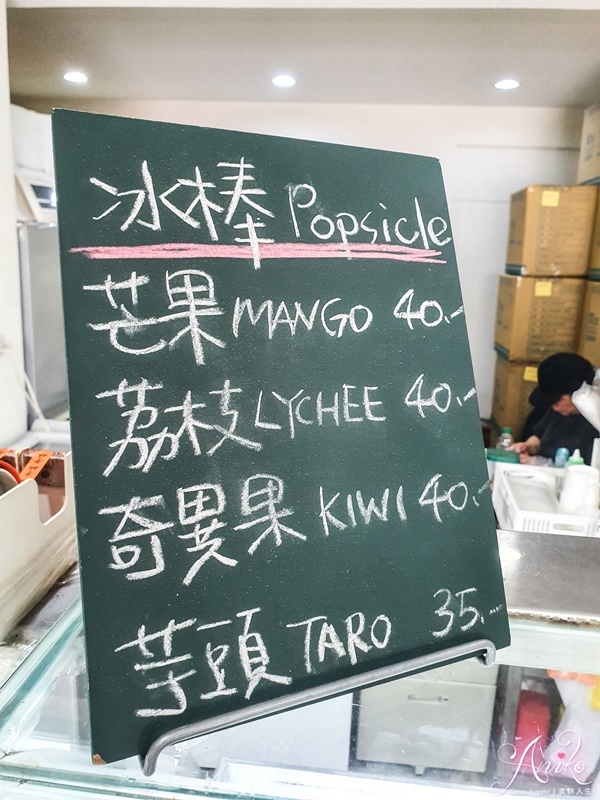 冰棒 Popsicle
芒果 MANGO 40.-
荔枝 LYCHEE 40.-
奇異果 KIWI 40.-
芋頭 TARO 35.-
Aniko
Bon Appetit | 美魅人生